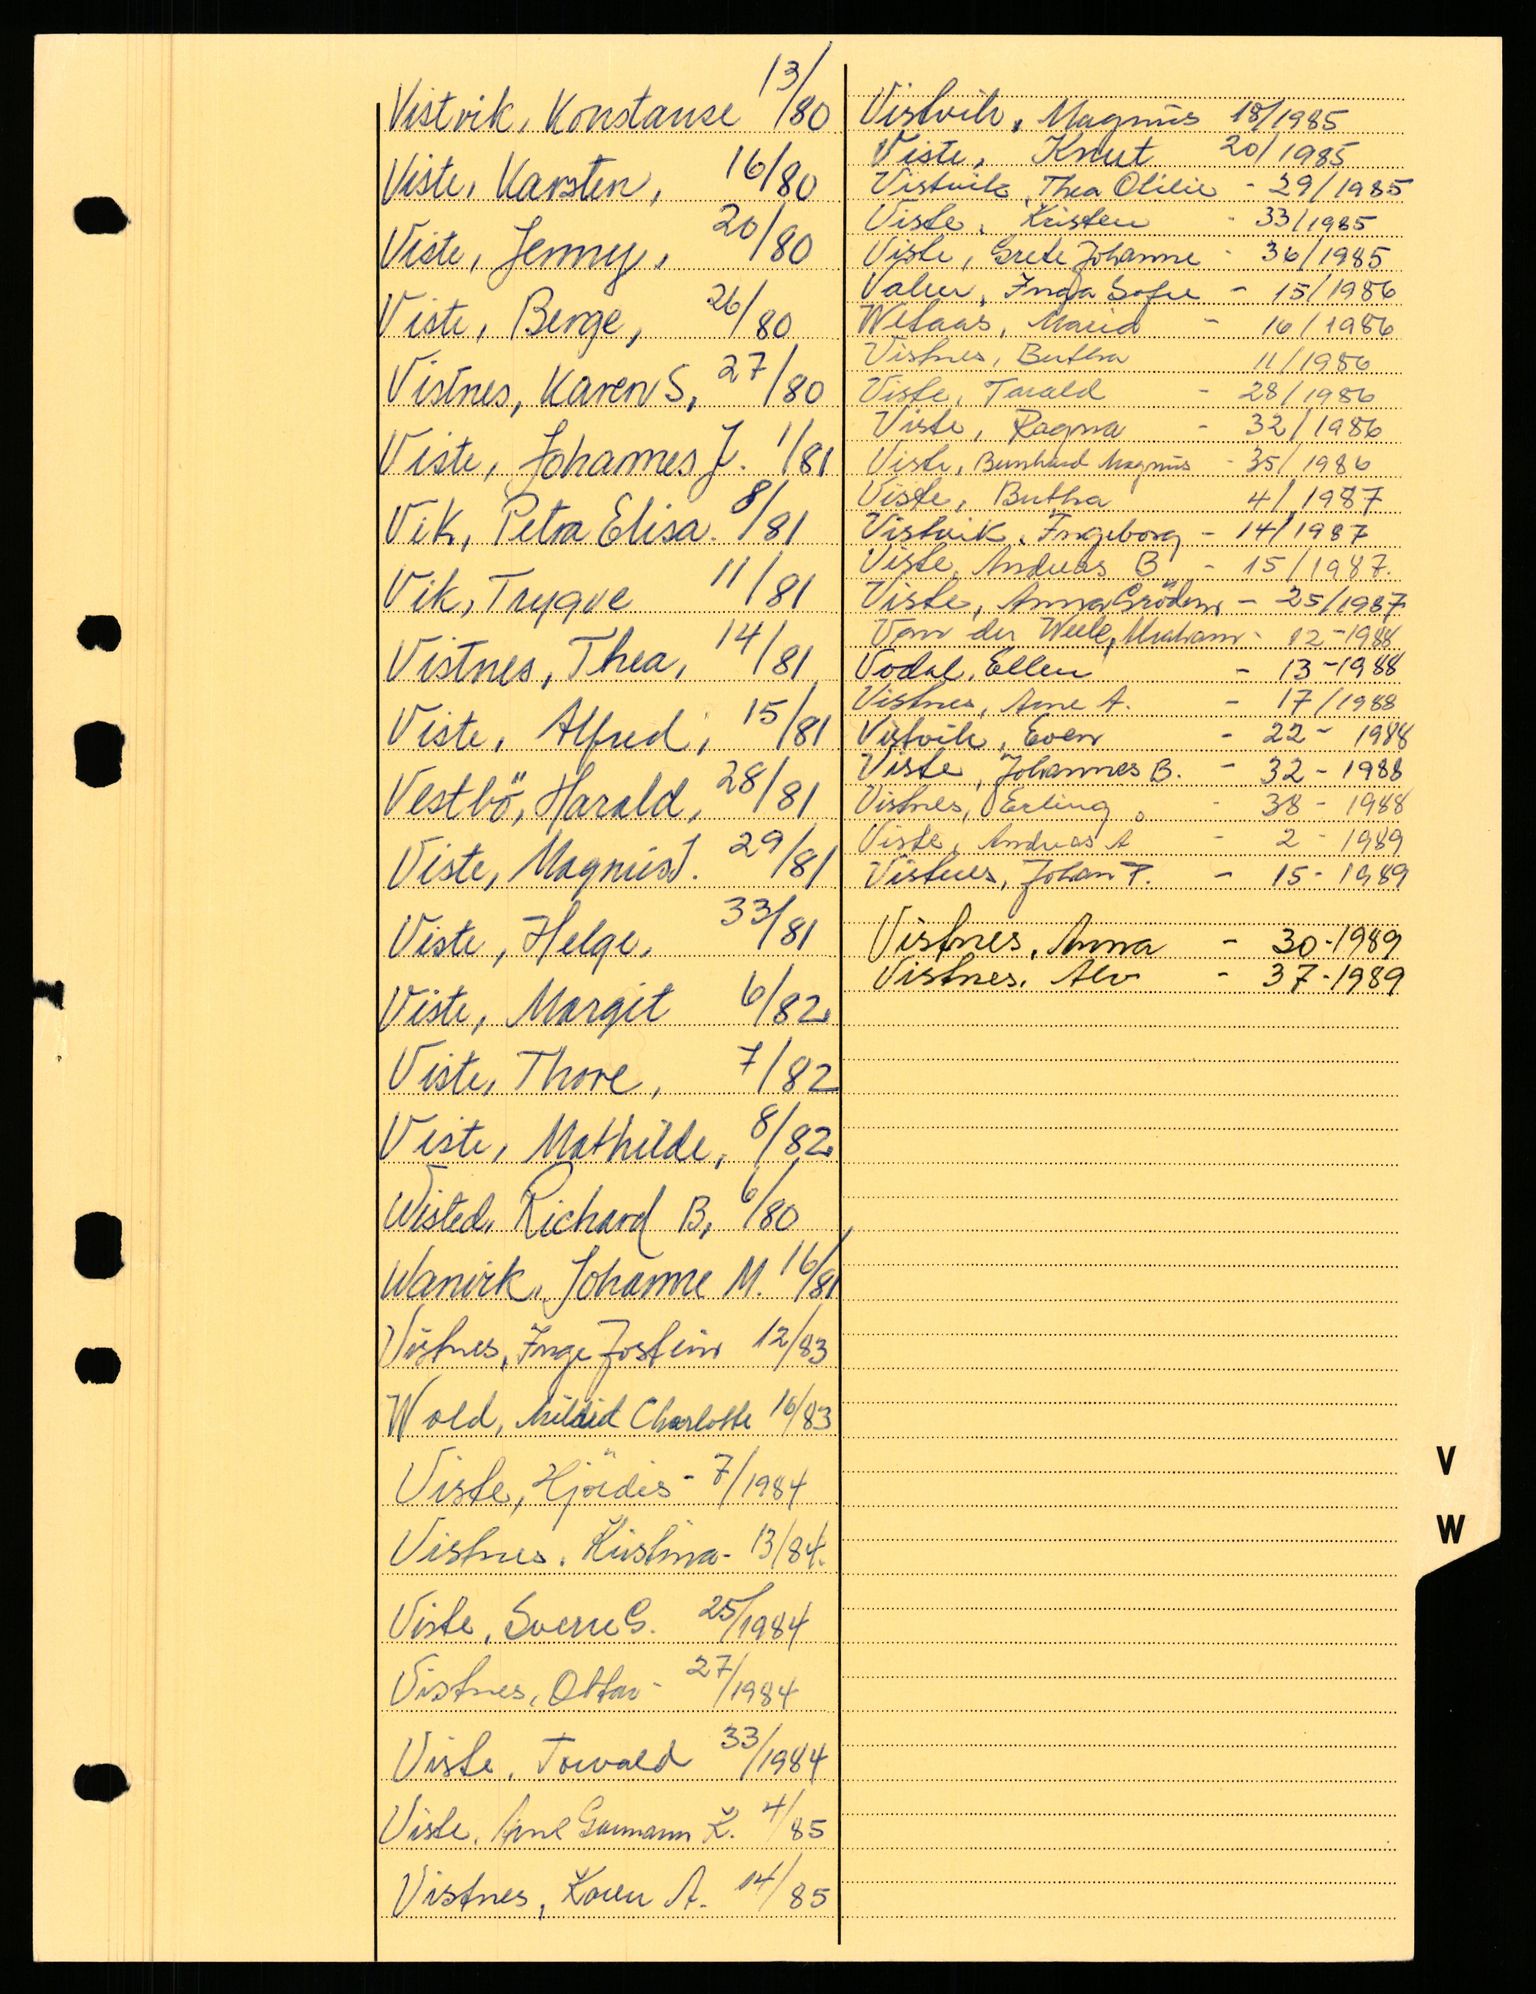 Vistvik, Konstanse 13/80
Viste, Karsten, 16/80
Viste, Jenny, 20/80
Viste, Berge, 26/80
Vistnes, Karen S, 27/80
Viste, Johannes J. 1/81
Vik, Petra Elisa. 8/81
Vik, Trygve 11/81
Vistnes, Thea, 14/81
Viste, Alfred, 15/81
Vestbö, Harald, 28/81
Viste, Magnus J. 29/81
Viste, Helge, 33/81
Viste, Margit 6/82
Viste, Thore, 7/82
Viste, Mathilde, 8/82
Wisted, Richard B, 6/80
Wanvik, Johanne M. 16/81
Vistnes, Inge Jostein 12/83
Wold, Charlotte 16/83
Viste, Hjördis - 7/1984
Vistnes, Kristina - 13/84.
Viste, Sverre G. 25/1984
Vistnes, Ottar - 27/1984
Viste, Torvald 33/1984
Viste, Arne Garmann K. 4/85
Vistnes, Karen A. 14/85
Vistvik, Magnus 18/1985
Viste, Knut 20/1985
Vistvik, Thea Otilie - 29/1985
Viste, Kristen - 33/1985
Viste, Grete Johanne - 36/1985
Inga Sofie - 15/1986
Wetaas, Maria - 16/1986
Vistnes, Bertha 11/1986
Viste, Tarald - 28/1986
Viste, Ragna - 32/1986
Viste, Bernhard Magnus - 35/1986
Viste, Bertha 4/1987
Vistvik, Ingeborg - 14/1987
Viste, Andreas B - 15/1987.
Viste, Anna Grödem - 25/1987
Van der Weele, Abraham - 12-1988
Vodal, Ellen - 13-1988
Vistnes, Arne A. - 17/1988
Vistvik, Even - 22 - 1988
Viste, Johannes B. - 32 - 1988
Vistnes, Erling - 38 - 1988
Viste, Andreas A - 2 - 1989
Vistnes, Johan T. - 15 - 1989
Vistnes, Anna - 30-1989
Vistnes, Alv - 37-1989
V
W